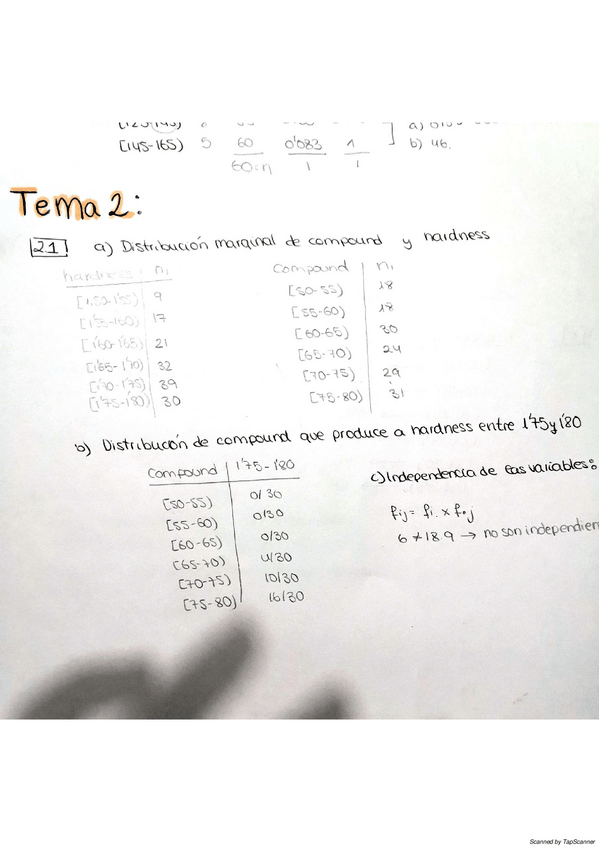 [145-165) 5 60 0'083 1 b) 46.
60=n 1 1
Tema 2:
21 a) Distribución marginal de compound y hardness
hardness ni
[1'50-1'55) 9
[1'55-1'60) 17
[1'60-1'65) 21
[1'65-1'70) 32
[1'70-1'75) 39
[1'75-1'80) 30
Compound ni
[50-55) 18
[55-60) 18
[60-65) 30
[65-70) 24
[70-75) 29
[75-80) 31
b) Distribución de compound que produce a hardness entre 1'75 y 1'80
Compound 1'75-1'80
[50-55) 0/30
[55-60) 0/30
[60-65) 0/30
[65-70) 4/30
[70-75) 10/30
[75-80) 16/30
c) Independencia de las variables:
fij = fi. x f.j
6 ≠ 18.9 → no son independien
Scanned by TapScanner